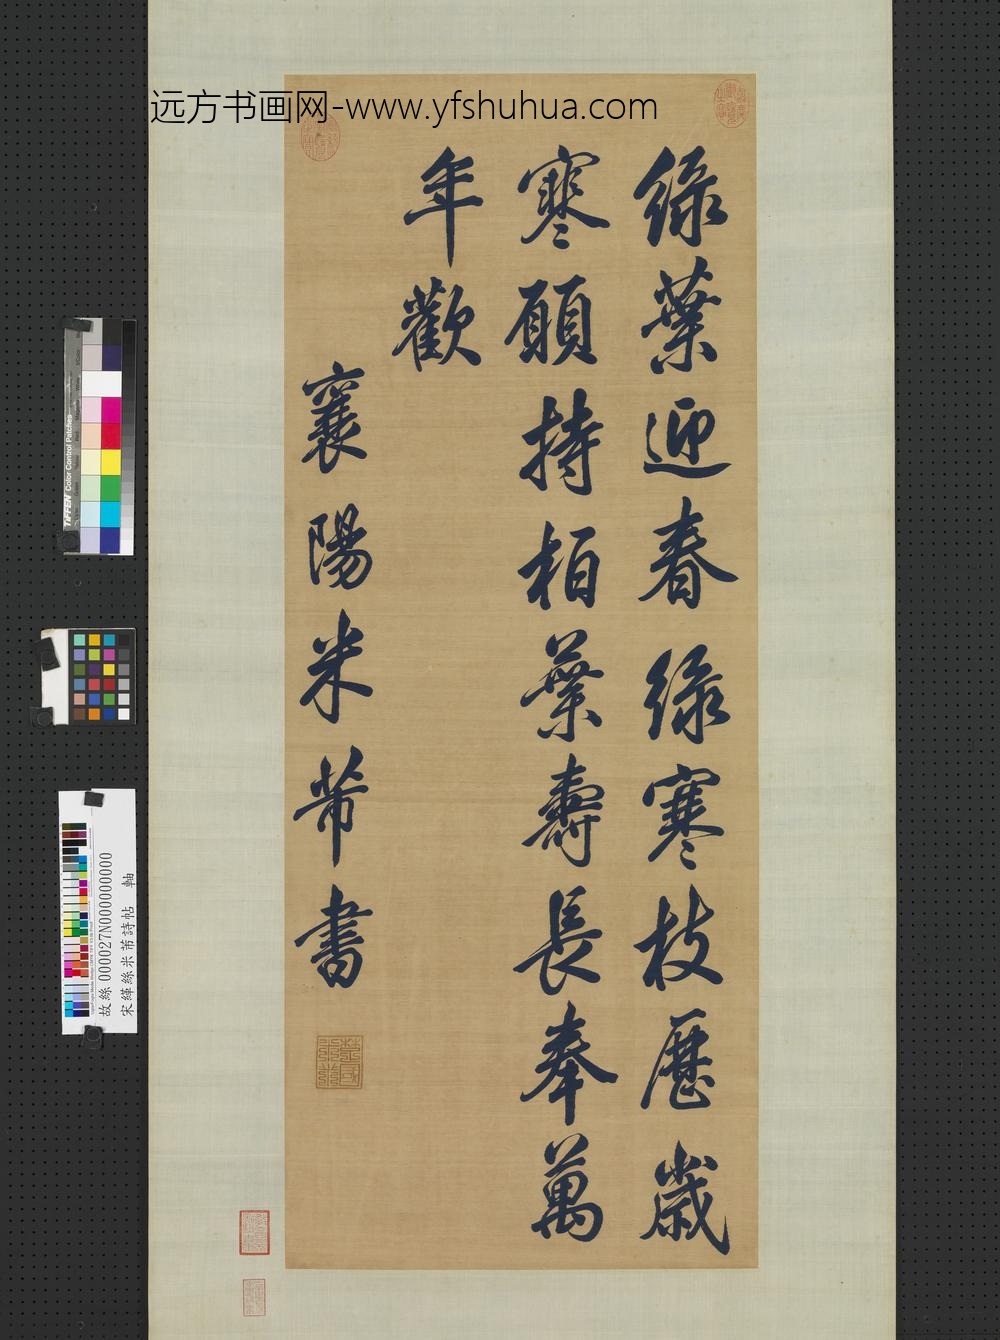 远方书画网-www.yfshuhua.com
綠葉迎春綠寒枝歷歲
寒願持栢葉壽長奉萬
年歡
襄陽米芾書
TIFFEN Color Control Patches
故絲 000027N000000000
宋緙絲米芾詩帖 軸